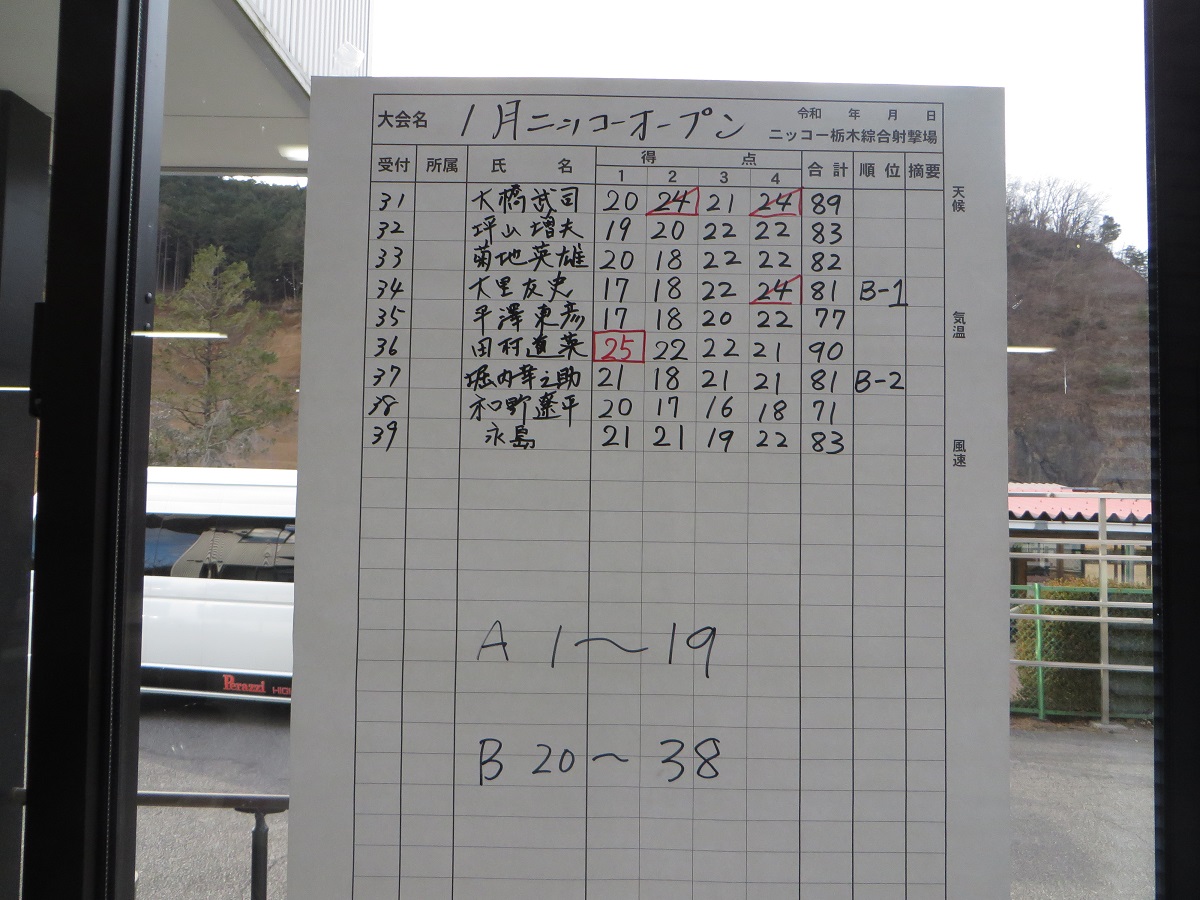 大会名 1月ニッコーオープン 令和 年 月 日
ニッコー栃木綜合射撃場
受付 所属 氏 名 得 点 合計 順位 摘要
1 2 3 4
天候
31 大橋武司 20 24 21 24 89
32 坪山増夫 19 20 22 22 83
33 菊地英雄 20 18 22 22 82
34 大里友史 17 18 22 24 81 B-1
気温
35 平澤東彦 17 18 20 22 77
36 田村直英 25 22 22 21 90
37 堀内幸之助 21 18 21 21 81 B-2
38 和野遼平 20 17 16 18 71
39 永島 21 21 19 22 83
風速
A 1〜19
B 20〜38
Perazzi